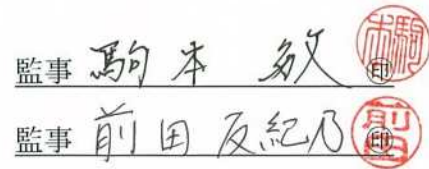 監事 駒本 敏 ㊞
監事 前田 友紀乃 ㊞